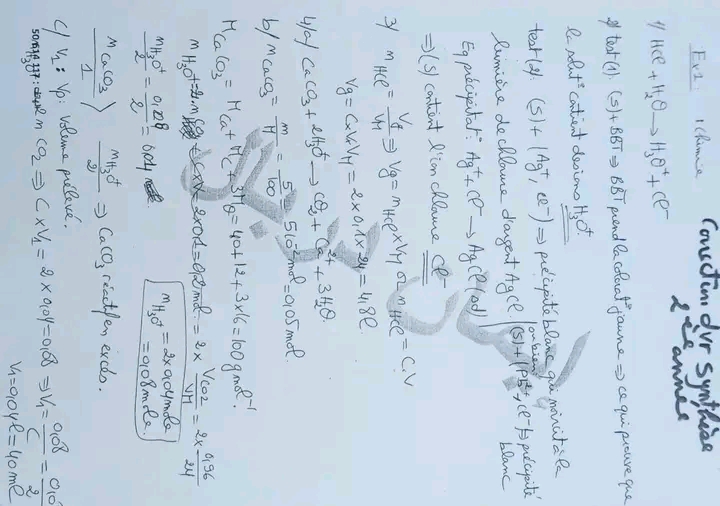 Correction dvr Synthèse
2ème année
Ex1: chimie
1/ HCl + H₂O → H₃O⁺ + Cl⁻
2/ test(1): (S) + BBT ⇒ BBT prend la colorat° jaune ⇒ ce qui prouve que
la solut° contient des ions H₃O⁺.
test(2): (S) + (Ag⁺, Cl⁻) ⇒ précipité blanc qui noircit à la
lumière de chlorure d'argent AgCl (ou bien (S) + (Pb²⁺, Cl⁻) ⇒ précipité
blanc
Eq précipitat°: Ag⁺ + Cl⁻ → AgCl (sd)
⇒ (S) contient l'ion chlorure Cl⁻
3) n HCl = Vg / VM ⇒ Vg = n HCl × VM or n HCl = C.V
Vg = C×V×VM = 2×0,1×24 = 4,8l.
4/a) CaCO₃ + 2H₃O⁺ → CO₂ + Ca²⁺ + 3H₂O.
b/ n CaCO₃ = m/M = 5/100 = 5.10⁻² mol = 0,05 mol.
M CaCO₃ = M Ca + M C + 3M O = 40+12+3×16 = 100 g mol⁻¹
n H₃O⁺ = C×V = 2×0,1 = 0,2 mol. = 2× VCO₂/VM = 2× 0,96/24
n H₃O⁺/2 = 0,08/2 = 0,04
n H₃O⁺ = 2×0,04 mole
= 0,08 mole.
n CaCO₃/1 > n H₃O⁺/2 ⇒ CaCO₃ réactif en excès.
c/ V₁: Vp: volume prélevé.
2 n CO₂ ⇒ C×V₁ = 2×0,04 = 0,08 ⇒ V₁ = 0,08/C = 0,0/2
V₁ = 0,04l = 40 ml